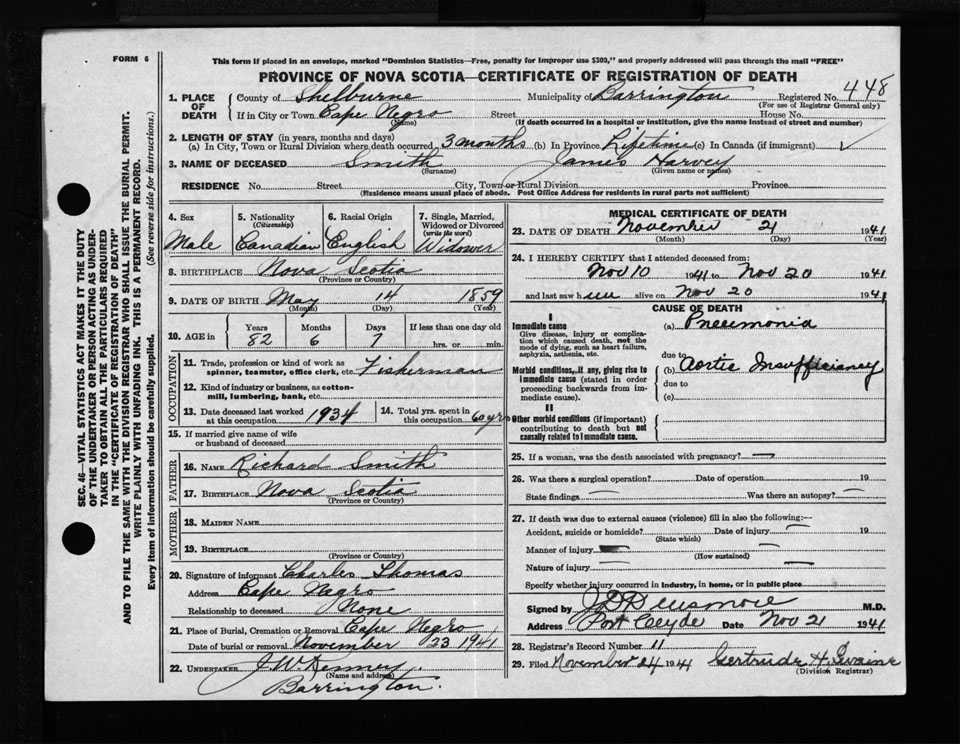 FORM 6
This form if placed in an envelope, marked "Dominion Statistics—Free, penalty for improper use $300," and properly addressed will pass through the mail "FREE"
PROVINCE OF NOVA SCOTIA—CERTIFICATE OF REGISTRATION OF DEATH
SEC. 46—VITAL STATISTICS ACT MAKES IT THE DUTY
OF THE UNDERTAKER OR PERSON ACTING AS UNDER-
TAKER TO OBTAIN ALL THE PARTICULARS REQUIRED
IN THE "CERTIFICATE OF REGISTRATION OF DEATH"
AND TO FILE THE SAME WITH THE DIVISION REGISTRAR WHO SHALL ISSUE THE BURIAL PERMIT.
WRITE PLAINLY WITH UNFADING INK. THIS IS A PERMANENT RECORD.
Every item of information should be carefully supplied. (See reverse side for instructions.)
1. PLACE OF DEATH County of Shelburne Municipality of Barrington Registered No. 448
(For use of Registrar General only)
If in City or Town Cape Negro Street House No.
(Name) (If death occurred in a hospital or institution, give the name instead of street and number)
2. LENGTH OF STAY (in years, months and days)
(a) In City, Town or Rural Division where death occurred 3 months (b) In Province Lifetime (c) In Canada (if immigrant)
3. NAME OF DECEASED Smith James Harvey
(Surname) (Given name or names)
RESIDENCE No. Street City, Town or Rural Division Province
(Residence means usual place of abode. Post Office Address for residents in rural parts not sufficient)
4. Sex Male
5. Nationality (Citizenship) Canadian
6. Racial Origin English
7. Single, Married, Widowed or Divorced (write the word) Widower
8. BIRTHPLACE Nova Scotia
(Province or Country)
9. DATE OF BIRTH May 14 1859
(Month) (Day) (Year)
10. AGE in Years 82 Months 6 Days 7 If less than one day old hrs. or min.
OCCUPATION
11. Trade, profession or kind of work as spinner, teamster, office clerk, etc. Fisherman
12. Kind of industry or business, as cotton-mill, lumbering, bank, etc.
13. Date deceased last worked at this occupation 1934
14. Total yrs. spent in this occupation 60 yrs
15. If married give name of wife or husband of deceased
FATHER
16. NAME Richard Smith
17. BIRTHPLACE Nova Scotia
(Province or Country)
MOTHER
18. MAIDEN NAME
19. BIRTHPLACE
(Province or Country)
20. Signature of informant Charles Thomas
Address Cape Negro
Relationship to deceased None
21. Place of Burial, Cremation or Removal Cape Negro
Date of burial or removal November 23 1941
22. UNDERTAKER J. W. Kenney
(Name and address)
Barrington.
MEDICAL CERTIFICATE OF DEATH
23. DATE OF DEATH November 21 1941
(Month) (Day) (Year)
24. I HEREBY CERTIFY that I attended deceased from:
Nov 10 1941 to Nov 20 1941
and last saw him alive on Nov 20 1941
CAUSE OF DEATH
I
Immediate cause (a) Pneumonia
Give disease, injury or complication which caused death, not the mode of dying, such as heart failure, asphyxia, asthenia, etc.
due to
Morbid conditions, if any, giving rise to immediate cause (stated in order proceeding backwards from immediate cause). (b) Aortic Insufficiency
due to
(c)
II
Other morbid conditions (if important) contributing to death but not causally related to immediate cause.
25. If a woman, was the death associated with pregnancy? —
26. Was there a surgical operation? — Date of operation 19
State findings — Was there an autopsy? —
27. If death was due to external causes (violence) fill in also the following:—
Accident, suicide or homicide? Date of injury — 19
(State which)
Manner of injury —
(How sustained)
Nature of injury —
Specify whether injury occurred in industry, in home, or in public place
Signed by J D Densmore M.D.
Address Port Clyde Date Nov 21 1941
28. Registrar's Record Number 11
29. Filed November 24 1941 Gertrude H. Swaine
(Division Registrar)